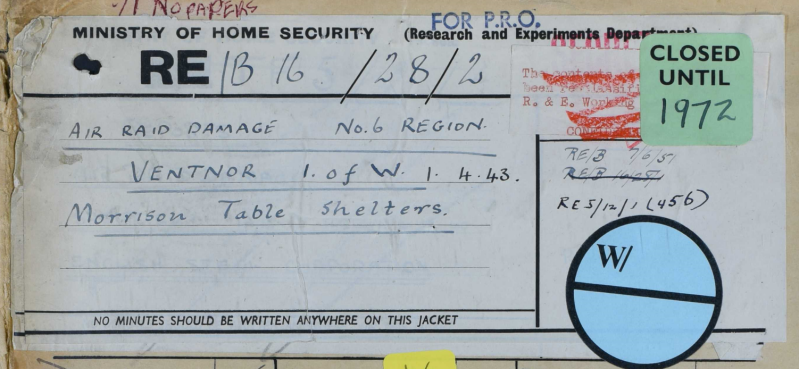 NO PAPERS
FOR P.R.O.
MINISTRY OF HOME SECURITY (Research and Experiments Department)
RE/B 16/28/2
CLOSED
UNTIL
1972
The contents
been
R. & E. Working
AIR RAID DAMAGE No.6 REGION.
VENTNOR I. of W. 1.4.43.
Morrison Table Shelters.
RE/B 7/6/51
RE/B
RE 5/12/1 (456)
W/
NO MINUTES SHOULD BE WRITTEN ANYWHERE ON THIS JACKET